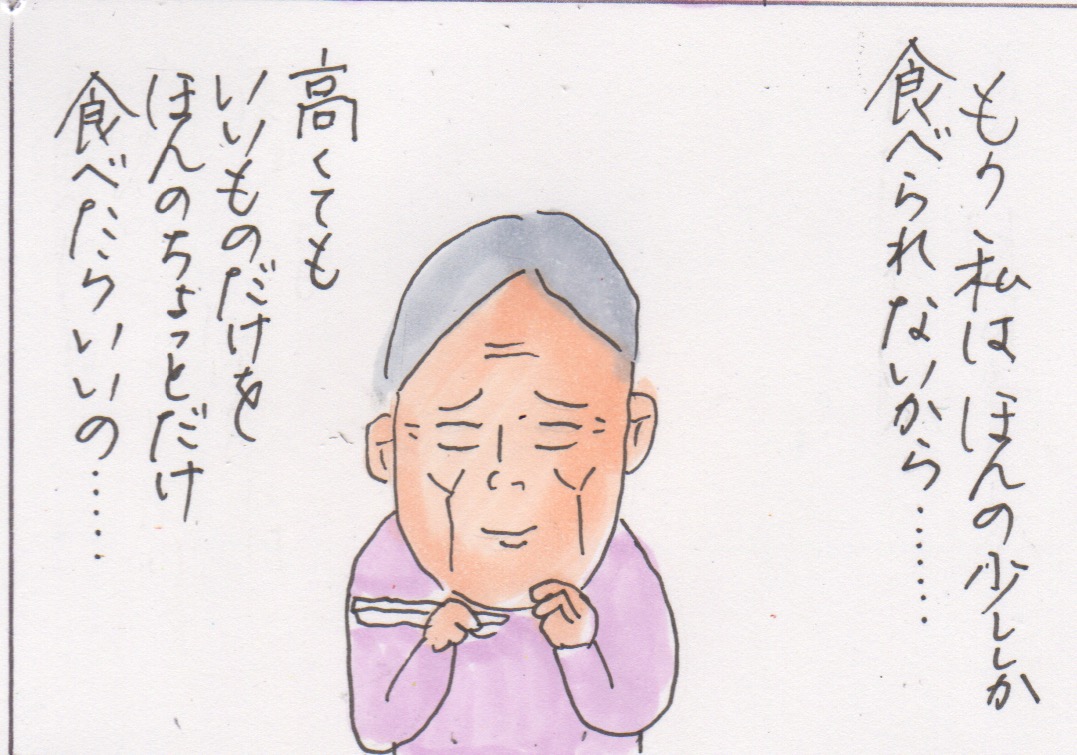 もう私はほんの少ししか
食べられないから‥‥‥
高くても
いいものだけを
ほんのちょっとだけ
食べたらいいの‥‥‥